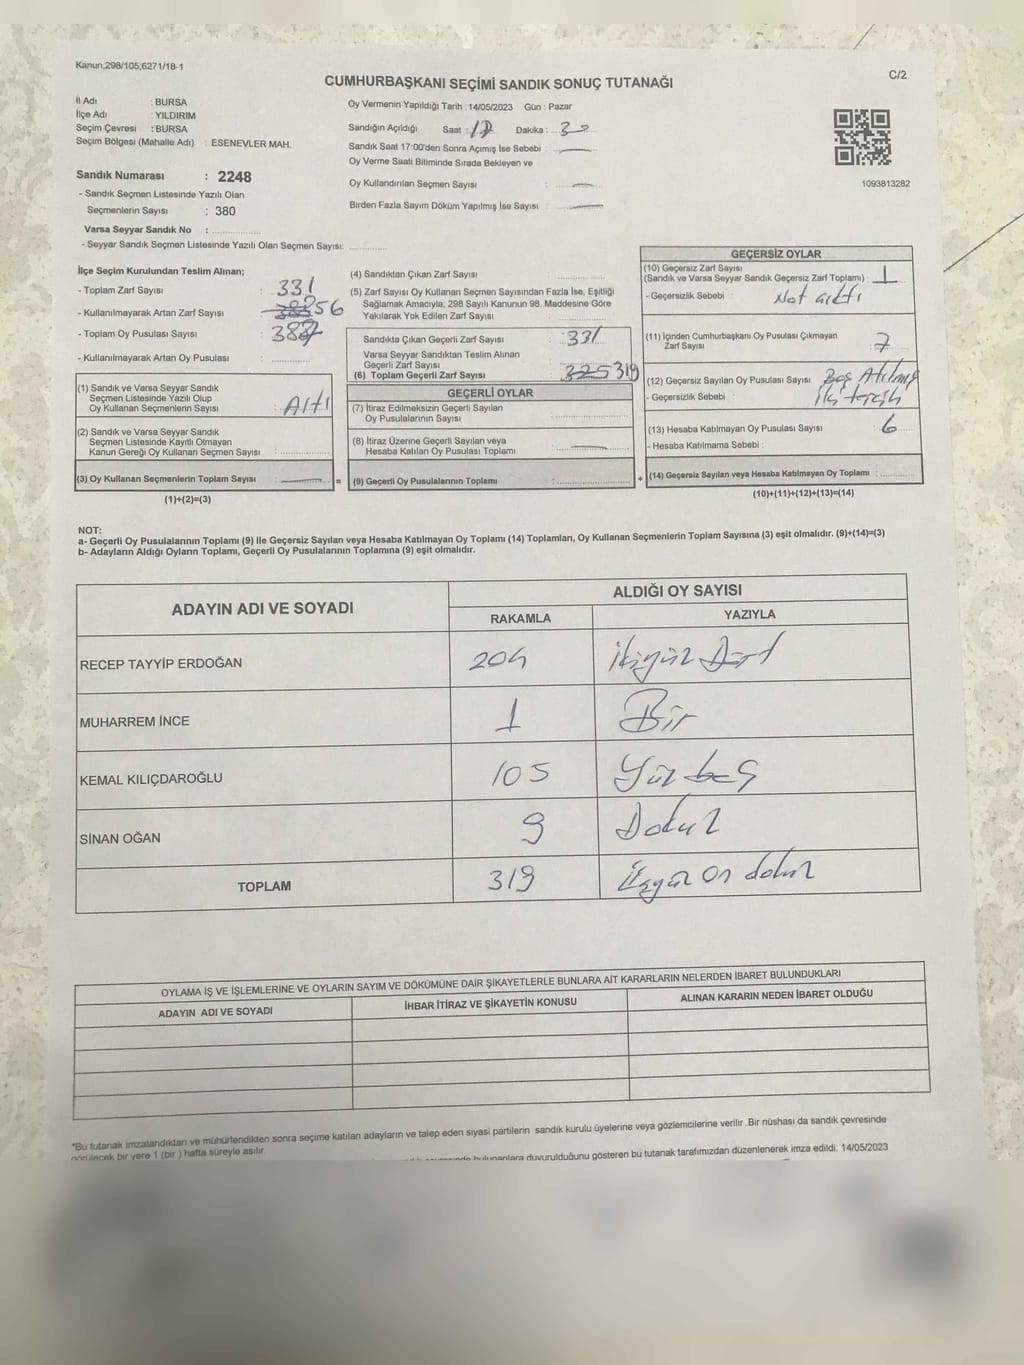 Kanun,298/105,6271/18-1
C/2
CUMHURBAŞKANI SEÇİMİ SANDIK SONUÇ TUTANAĞI
İl Adı : BURSA
İlçe Adı : YILDIRIM
Seçim Çevresi : BURSA
Seçim Bölgesi (Mahalle Adı) : ESENEVLER MAH.
Sandık Numarası : 2248
- Sandık Seçmen Listesinde Yazılı Olan
Seçmenlerin Sayısı : 380
Varsa Seyyar Sandık No :
- Seyyar Sandık Seçmen Listesinde Yazılı Olan Seçmen Sayısı:
Oy Vermenin Yapıldığı Tarih : 14/05/2023 Gün : Pazar
Sandığın Açıldığı Saat : Dakika : 30
Sandık Saat 17:00'den Sonra Açımış İse Sebebi :
Oy Verme Saati Bitiminde Sırada Bekleyen ve
Oy Kullandırılan Seçmen Sayısı :
Birden Fazla Sayım Döküm Yapılmış İse Sayısı :
1093813282
İlçe Seçim Kurulundan Teslim Alınan;
- Toplam Zarf Sayısı : 331
- Kullanılmayarak Artan Zarf Sayısı : 56
- Toplam Oy Pusulası Sayısı : 387
- Kullanılmayarak Artan Oy Pusulası :
(1) Sandık ve Varsa Seyyar Sandık
Seçmen Listesinde Yazılı Olup
Oy Kullanan Seçmenlerin Sayısı : Altı
(2) Sandık ve Varsa Seyyar Sandık
Seçmen Listesinde Kayıtlı Olmayan
Kanun Gereği Oy Kullanan Seçmen Sayısı :
(3) Oy Kullanan Seçmenlerin Toplam Sayısı : =
(1)+(2)=(3)
(4) Sandıktan Çıkan Zarf Sayısı :
(5) Zarf Sayısı Oy Kullanan Seçmen Sayısından Fazla İse, Eşitliği
Sağlamak Amacıyla; 298 Sayılı Kanunun 98. Maddesine Göre
Yakılarak Yok Edilen Zarf Sayısı :
Sandıkta Çıkan Geçerli Zarf Sayısı : 331
Varsa Seyyar Sandıktan Teslim Alınan
Geçerli Zarf Sayısı :
(6) Toplam Geçerli Zarf Sayısı : 325 319
GEÇERLİ OYLAR
(7) İtiraz Edilmeksizin Geçerli Sayılan
Oy Pusulalarının Sayısı :
(8) İtiraz Üzerine Geçerli Sayılan veya
Hesaba Katılan Oy Pusulası Toplamı :
(9) Geçerli Oy Pusulalarının Toplamı : +
GEÇERSİZ OYLAR
(10) Geçersiz Zarf Sayısı
(Sandık ve Varsa Seyyar Sandık Geçersiz Zarf Toplamı) : 1
- Geçersizlik Sebebi : Not attı
(11) İçinden Cumhurbaşkanı Oy Pusulası Çıkmayan
Zarf Sayısı : 7
(12) Geçersiz Sayılan Oy Pusulası Sayısı : Boş Atılmış
- Geçersizlik Sebebi : iki tercih
(13) Hesaba Katılmayan Oy Pusulası Sayısı : 6
- Hesaba Katılmama Sebebi :
(14) Geçersiz Sayılan veya Hesaba Katılmayan Oy Toplamı :
(10)+(11)+(12)+(13)=(14)
NOT:
a- Geçerli Oy Pusulalarının Toplamı (9) ile Geçersiz Sayılan veya Hesaba Katılmayan Oy Toplamı (14) Toplamları, Oy Kullanan Seçmenlerin Toplam Sayısına (3) eşit olmalıdır. (9)+(14)=(3)
b- Adayların Aldığı Oyların Toplamı, Geçerli Oy Pusulalarının Toplamına (9) eşit olmalıdır.
ADAYIN ADI VE SOYADI
ALDIĞI OY SAYISI
RAKAMLA YAZIYLA
RECEP TAYYİP ERDOĞAN 204 İkiyüz Dört
MUHARREM İNCE 1 Bir
KEMAL KILIÇDAROĞLU 105 Yüz beş
SİNAN OĞAN 9 Dokuz
TOPLAM 319 Üçyüz On dokuz
OYLAMA İŞ VE İŞLEMLERİNE VE OYLARIN SAYIM VE DÖKÜMÜNE DAİR ŞİKAYETLERLE BUNLARA AİT KARARLARIN NELERDEN İBARET BULUNDUKLARI
ADAYIN ADI VE SOYADI İHBAR İTİRAZ VE ŞİKAYETİN KONUSU ALINAN KARARIN NEDEN İBARET OLDUĞU
*Bu tutanak imzalandıktan ve mühürlendikten sonra seçime katılan adayların ve talep eden siyasi partilerin sandık kurulu üyelerine veya gözlemcilerine verilir .Bir nüshası da sandık çevresinde
görülecek bir yere 1 (bir ) hafta süreyle asılır
bulunanlara duyurulduğunu gösteren bu tutanak tarafımızdan düzenlenerek imza edildi. 14/05/2023